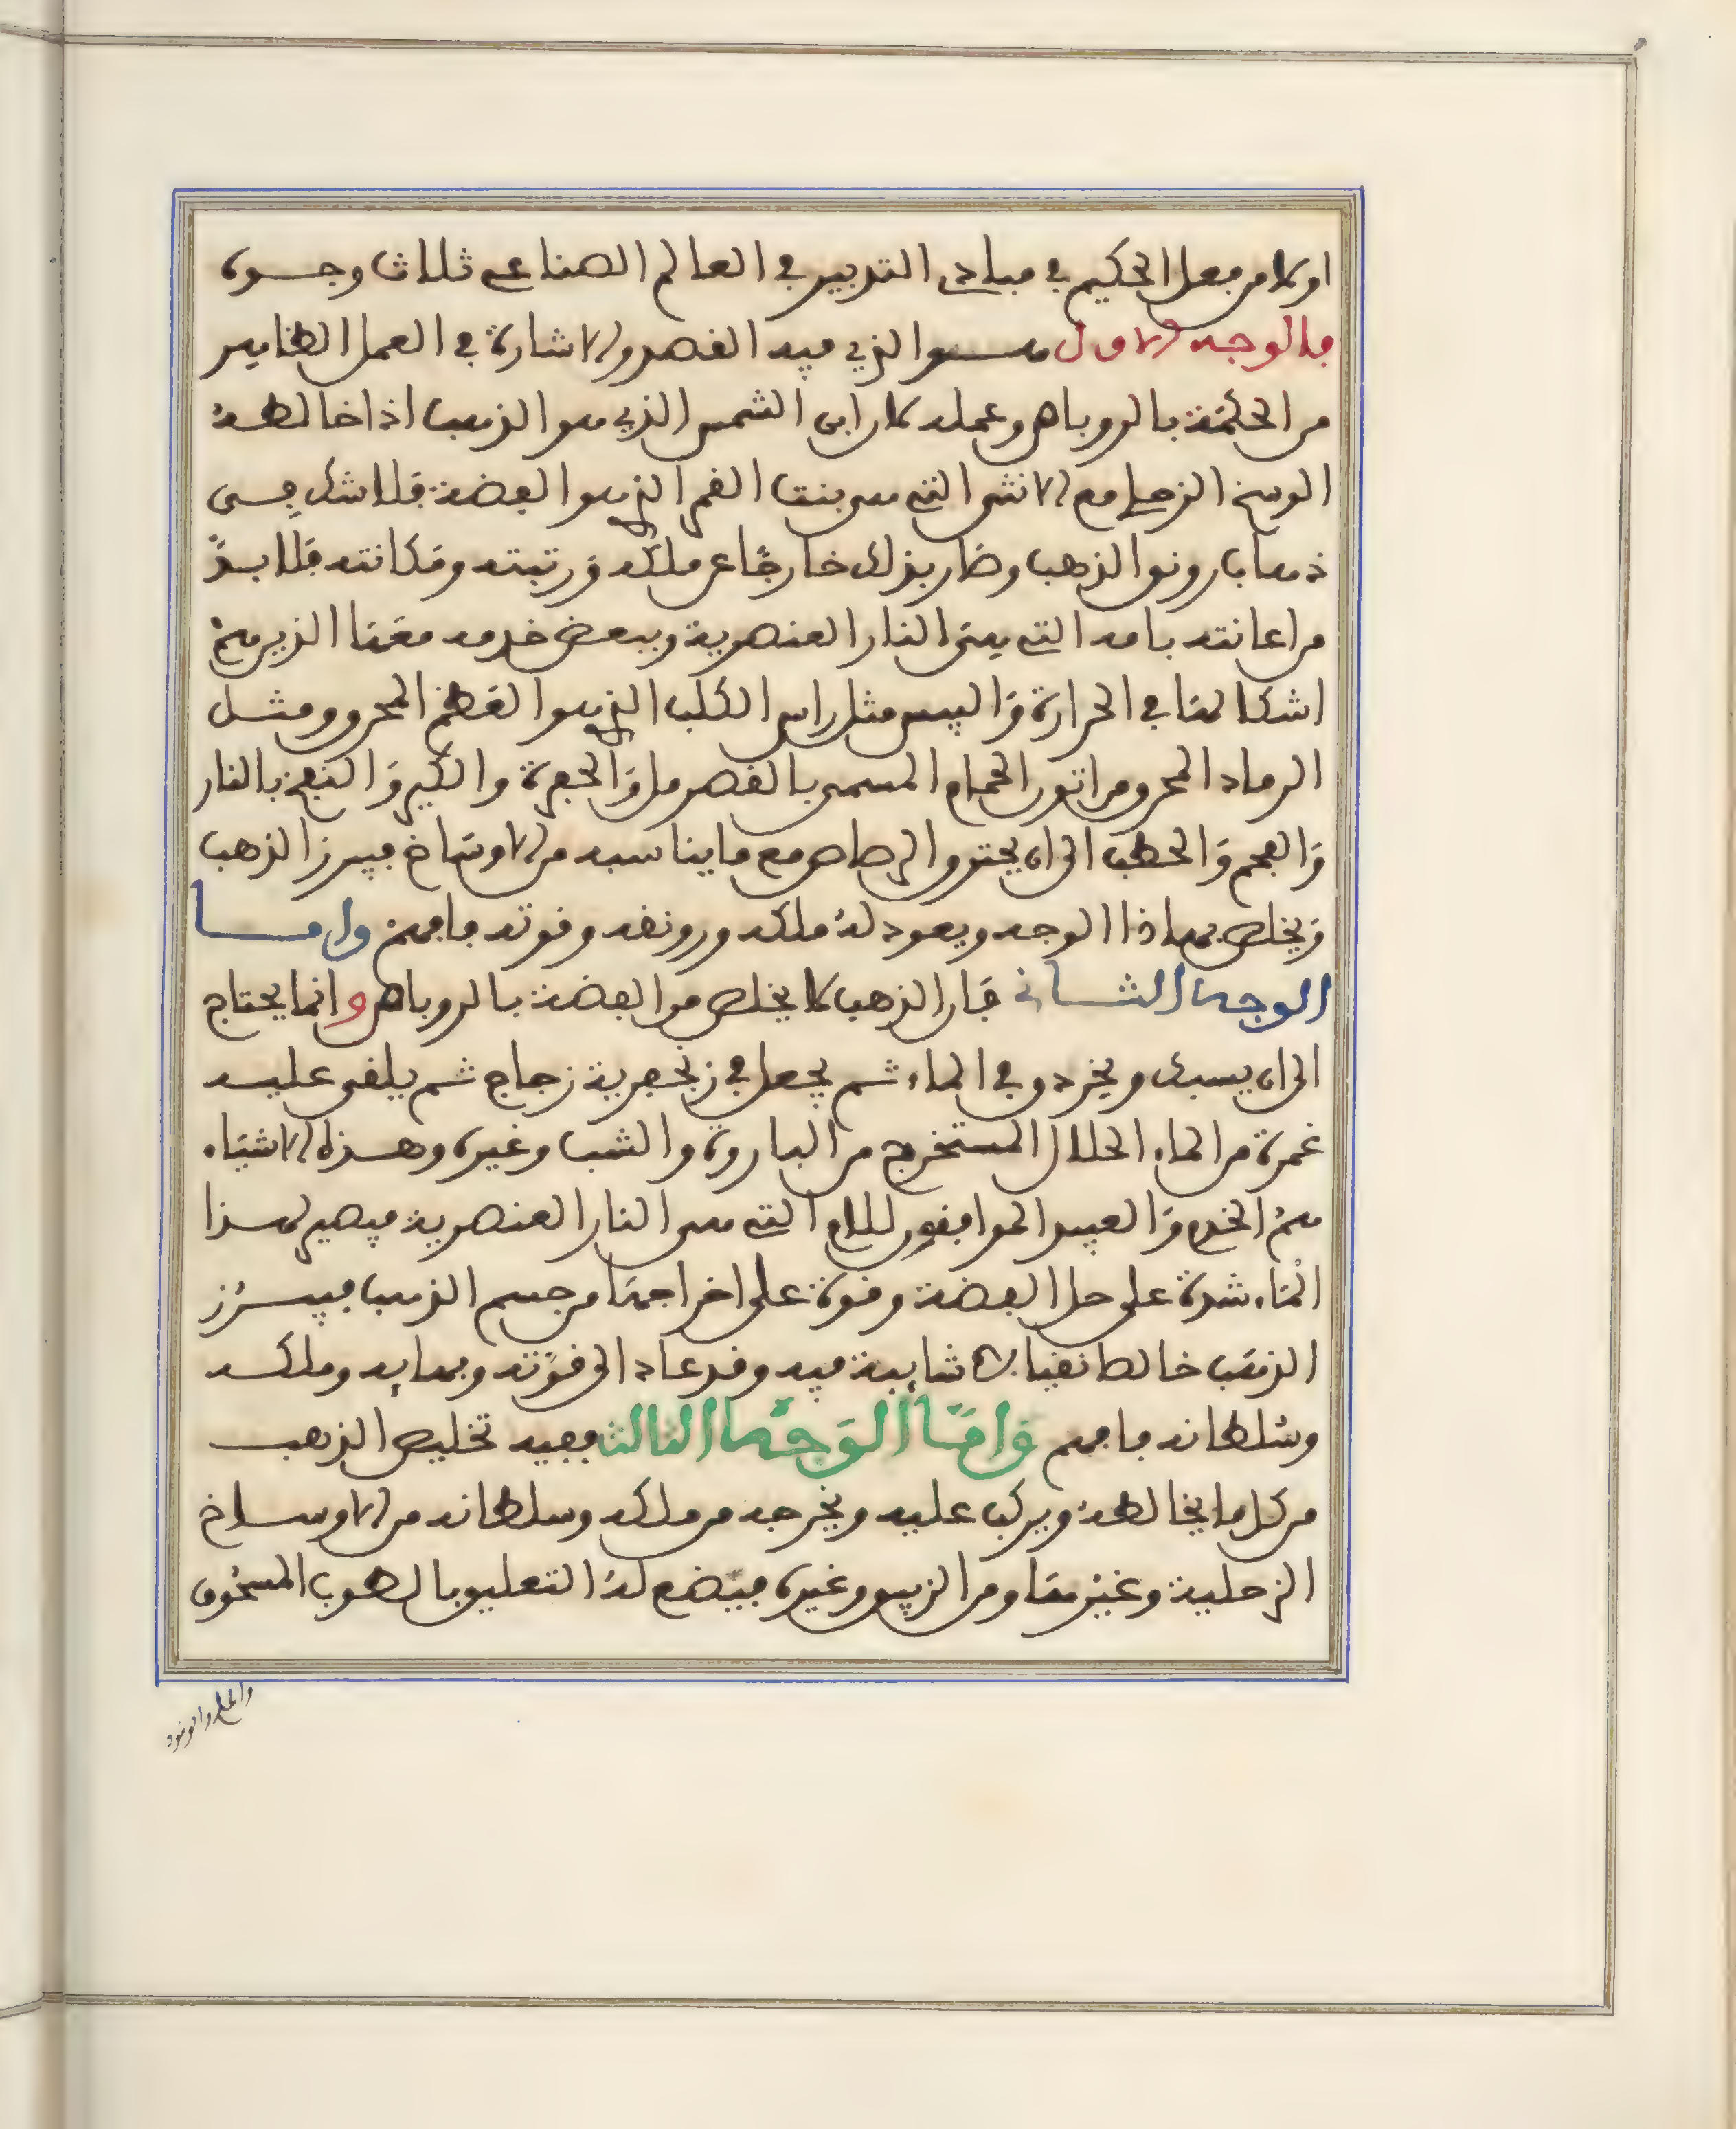 اولا من فعل الحكيم في مبادي التدبير في العالم الصناعي ثلاث وجوه
فالوجه الاول هو الذي فيه القصد والاشارة في العمل الظاهر
من الحكمة بالروباص وعمله لان ابن الشمس الذي هو الذهب اذا خالطه
الوسخ الزحلي مع الانثى التي هي بنت القمر الذي هو الفضة فلا شك في
ذهاب رونق الذهب وصار بذلك خارجا عن ملكه ورتبته ومكانته فلا بد
من اعانته بامه التي هي النار العنصرية وببعض خدمه معها الذين هم
اشكالها في الحرارة واليبس مثل راس الكلب الذي هو العظم المحروق ومثل
الرماد المحروق من اتون الحمام المسمى بالقصرمل والجفرة والكير والنفخ بالنار
والفحم والحطب الى ان يحترق الرصاص مع ما يناسبه من الاوساخ فيبرز الذهب
ويخلص بهاذا الوجه ويعود له ملكه ورونقه وقوته فافهم واما
الوجه الثاني فان الذهب لا يخلص من الفضة بالروباص وانما يحتاج
الى ان يسبك ويخردق في الماء ثم يجعل في زنجفرية زجاج ثم يلقى عليه
غمرة من الماء الحلال المستخرج من البارود والشب وغيره وهذه الاشياء
هم الخدم والعبيد الموافقون للام التي هي النار العنصرية فيصير لهذا
الماء شدة على حل الفضة وقوة على اخراجها من جسم الذهب فيبرز
الذهب خالصا نقيا لا شايبة فيه وقد عاد الى قوته وبهايه وملكه
وسلطانه فافهم واما الوجه الثالث ففيه تخليص الذهب
من كل ما يخالطه ويركب عليه ويخرجه من ملكه وسلطانه من الاوساخ
الزحلية وغيرها ومن الزيبق وغيره فيصنع له التعليق بالطوب المسحوق
والملح والوقود